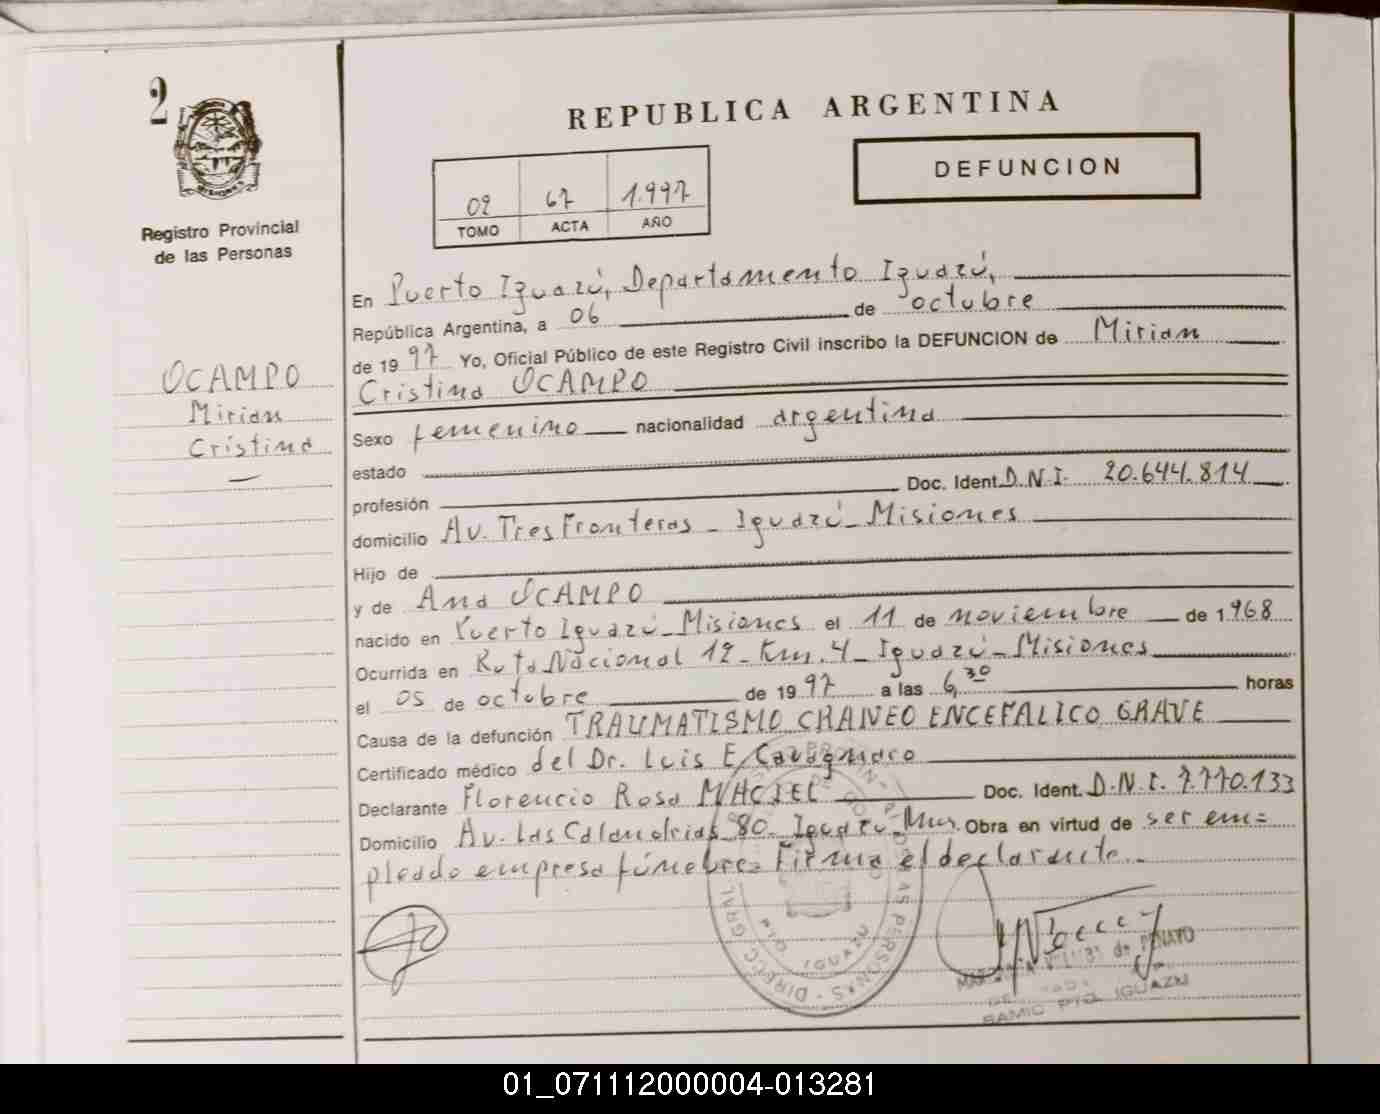 2
Registro Provincial
de las Personas
OCAMPO
Mirian
Cristina
REPUBLICA ARGENTINA
DEFUNCION
02 67 1.997
TOMO ACTA AÑO
En Puerto Iguazú, Departamento Iguazú,
República Argentina, a 06 de octubre
de 1997 Yo, Oficial Público de este Registro Civil inscribo la DEFUNCION de Mirian
Cristina OCAMPO
Sexo femenino nacionalidad argentina
estado
profesión Doc. Ident. D.N.I. 20.644.814
domicilio Av. Tres Fronteras - Iguazú - Misiones
Hijo de
y de Ana OCAMPO
nacido en Puerto Iguazú - Misiones el 11 de noviembre de 1.968
Ocurrida en Ruta Nacional 12 - Km. 4 - Iguazú - Misiones
el 05 de octubre de 1997 a las 6,30 horas
Causa de la defunción TRAUMATISMO CRANEO ENCEFALICO GRAVE
Certificado médico del Dr. Luis E.
Declarante Florencio Rosa MACIEL Doc. Ident. D.N.I. 7.770.133
Domicilio Av. Las Calandrias 80 - Iguazú - Mnes. Obra en virtud de ser em=
pleado empresa fúnebre= Firma el declarante.-
DIRECC GRAL PERSONAS
IGUAZU
de PENAYO
PTO. IGUAZU
01_071112000004-013281